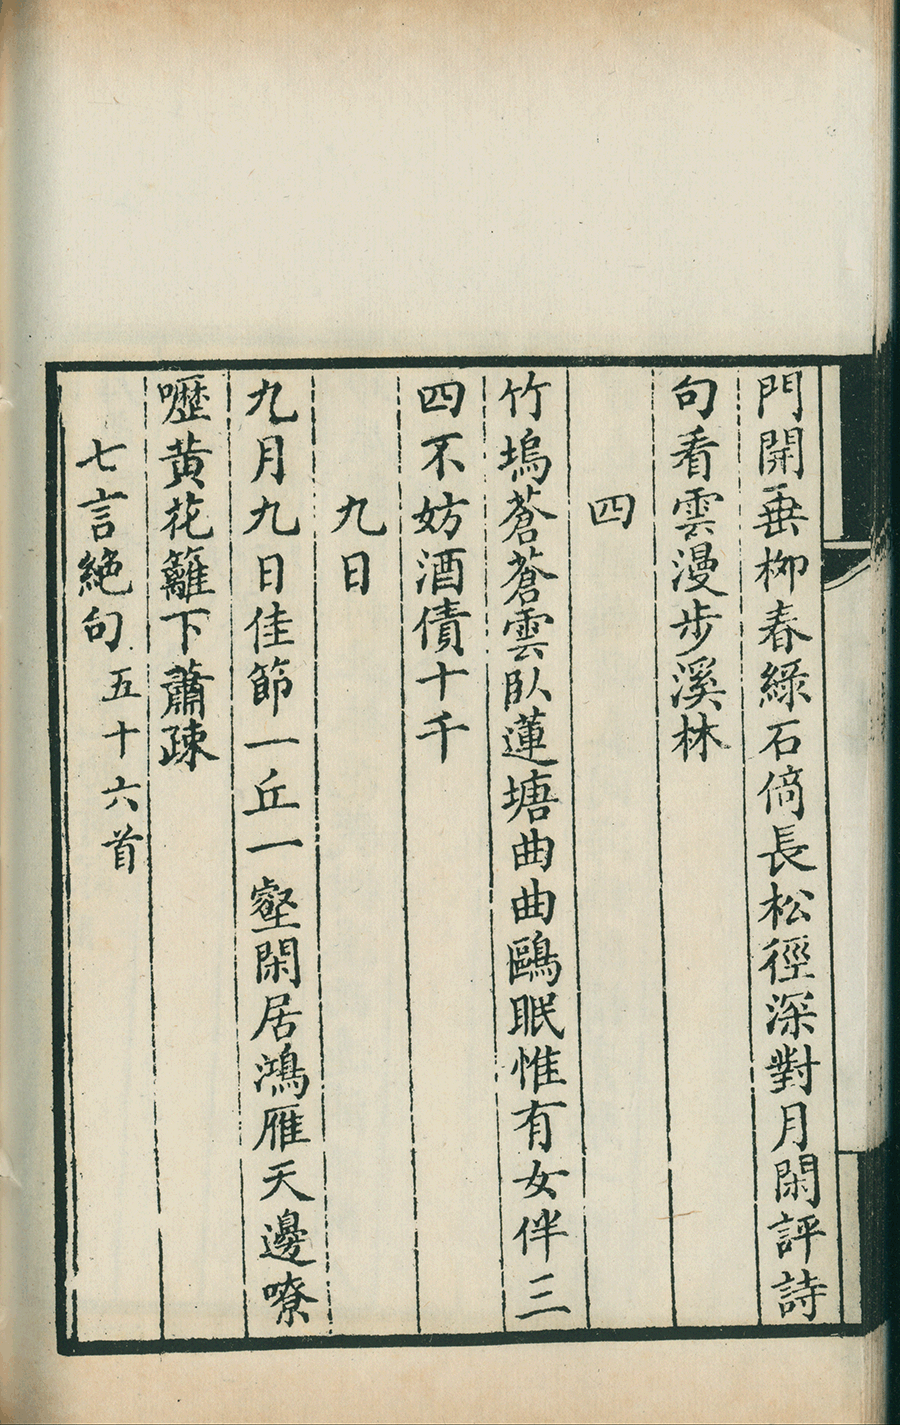 門開垂栁春緑石倚長松徑深對月閑評詩
句看雲漫步溪林
四
竹塢蒼蒼雲臥蓮塘曲曲鷗眠惟有女伴三
四不妨酒債十千
九日
九月九日佳節一丘一壑閑居鴻雁天邊嘹
嚦黃花籬下蕭疎
七言絕句五十六首